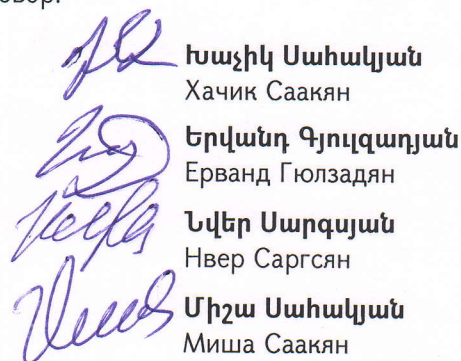 Խաչիկ Սահակյան
Хачик Саакян
Երվանդ Գյուլզադյան
Ерванд Гюлзадян
Նվեր Սարգսյան
Нвер Саргсян
Միշա Սահակյան
Миша Саакян